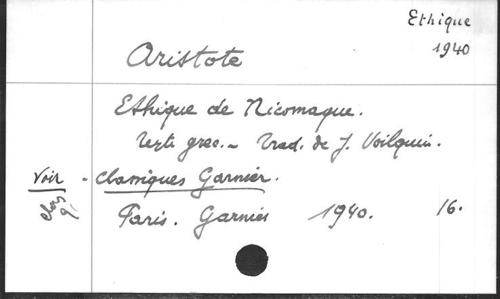 Ethique
1940
Aristote
Ethique de Nicomaque.
Texte grec. - Trad. de J. Voilquin.
Voir - Classiques Garnier.
Paris. Garnier 1940. 16.